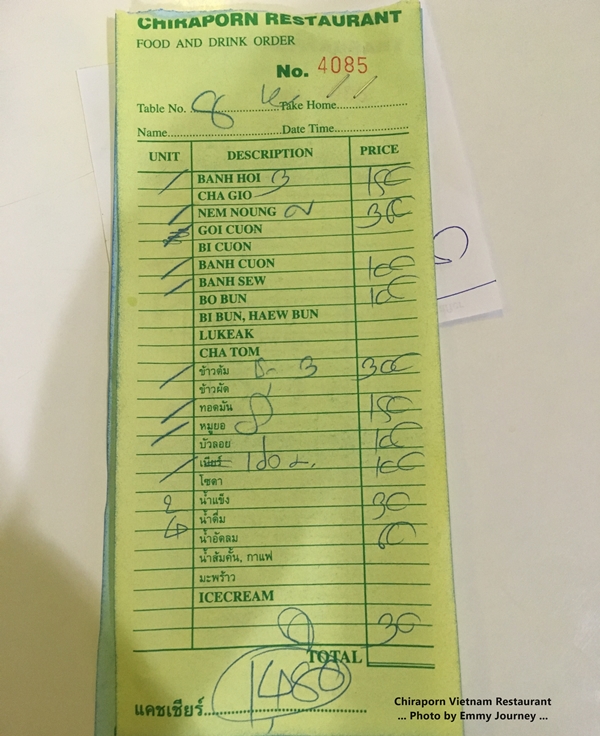 CHIRAPORN RESTAURANT
FOOD AND DRINK ORDER
No. 4085
Table No. 8 Take Home
Name Date Time
UNIT DESCRIPTION PRICE
BANH HOI 3 150
CHA GIO
NEM NOUNG 300
GOI CUON
BI CUON
BANH CUON 100
BANH SEW
BO BUN 100
BI BUN, HAEW BUN
LUKEAK
CHA TOM
ข้าวต้ม 3 300
ข้าวผัด
ทอดมัน 150
หมูยอ
บัวลอย 100
เบียร์ 100
โซดา
2 น้ำแข็ง 30
4 น้ำดื่ม
น้ำอัดลม 60
น้ำส้มคั้น, กาแฟ
มะพร้าว
ICECREAM
30
TOTAL
แคชเชียร์ 1480
Chiraporn Vietnam Restaurant
... Photo by Emmy Journey ...